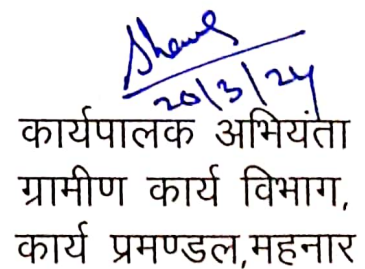 20/3/24
कार्यपालक अभियंता
ग्रामीण कार्य विभाग,
कार्य प्रमण्डल,महनार